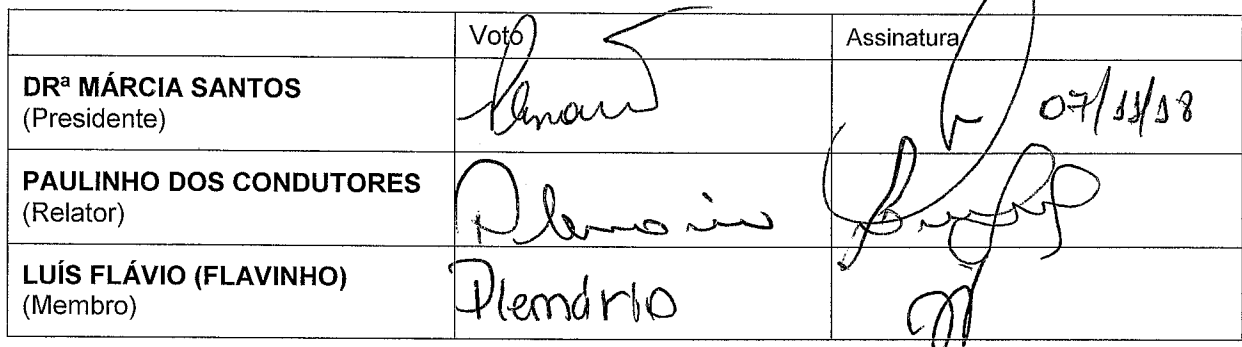 Voto Assinatura
DRª MÁRCIA SANTOS
(Presidente) 07/11/18
PAULINHO DOS CONDUTORES
(Relator) Plenário
LUÍS FLÁVIO (FLAVINHO)
(Membro) Plenário